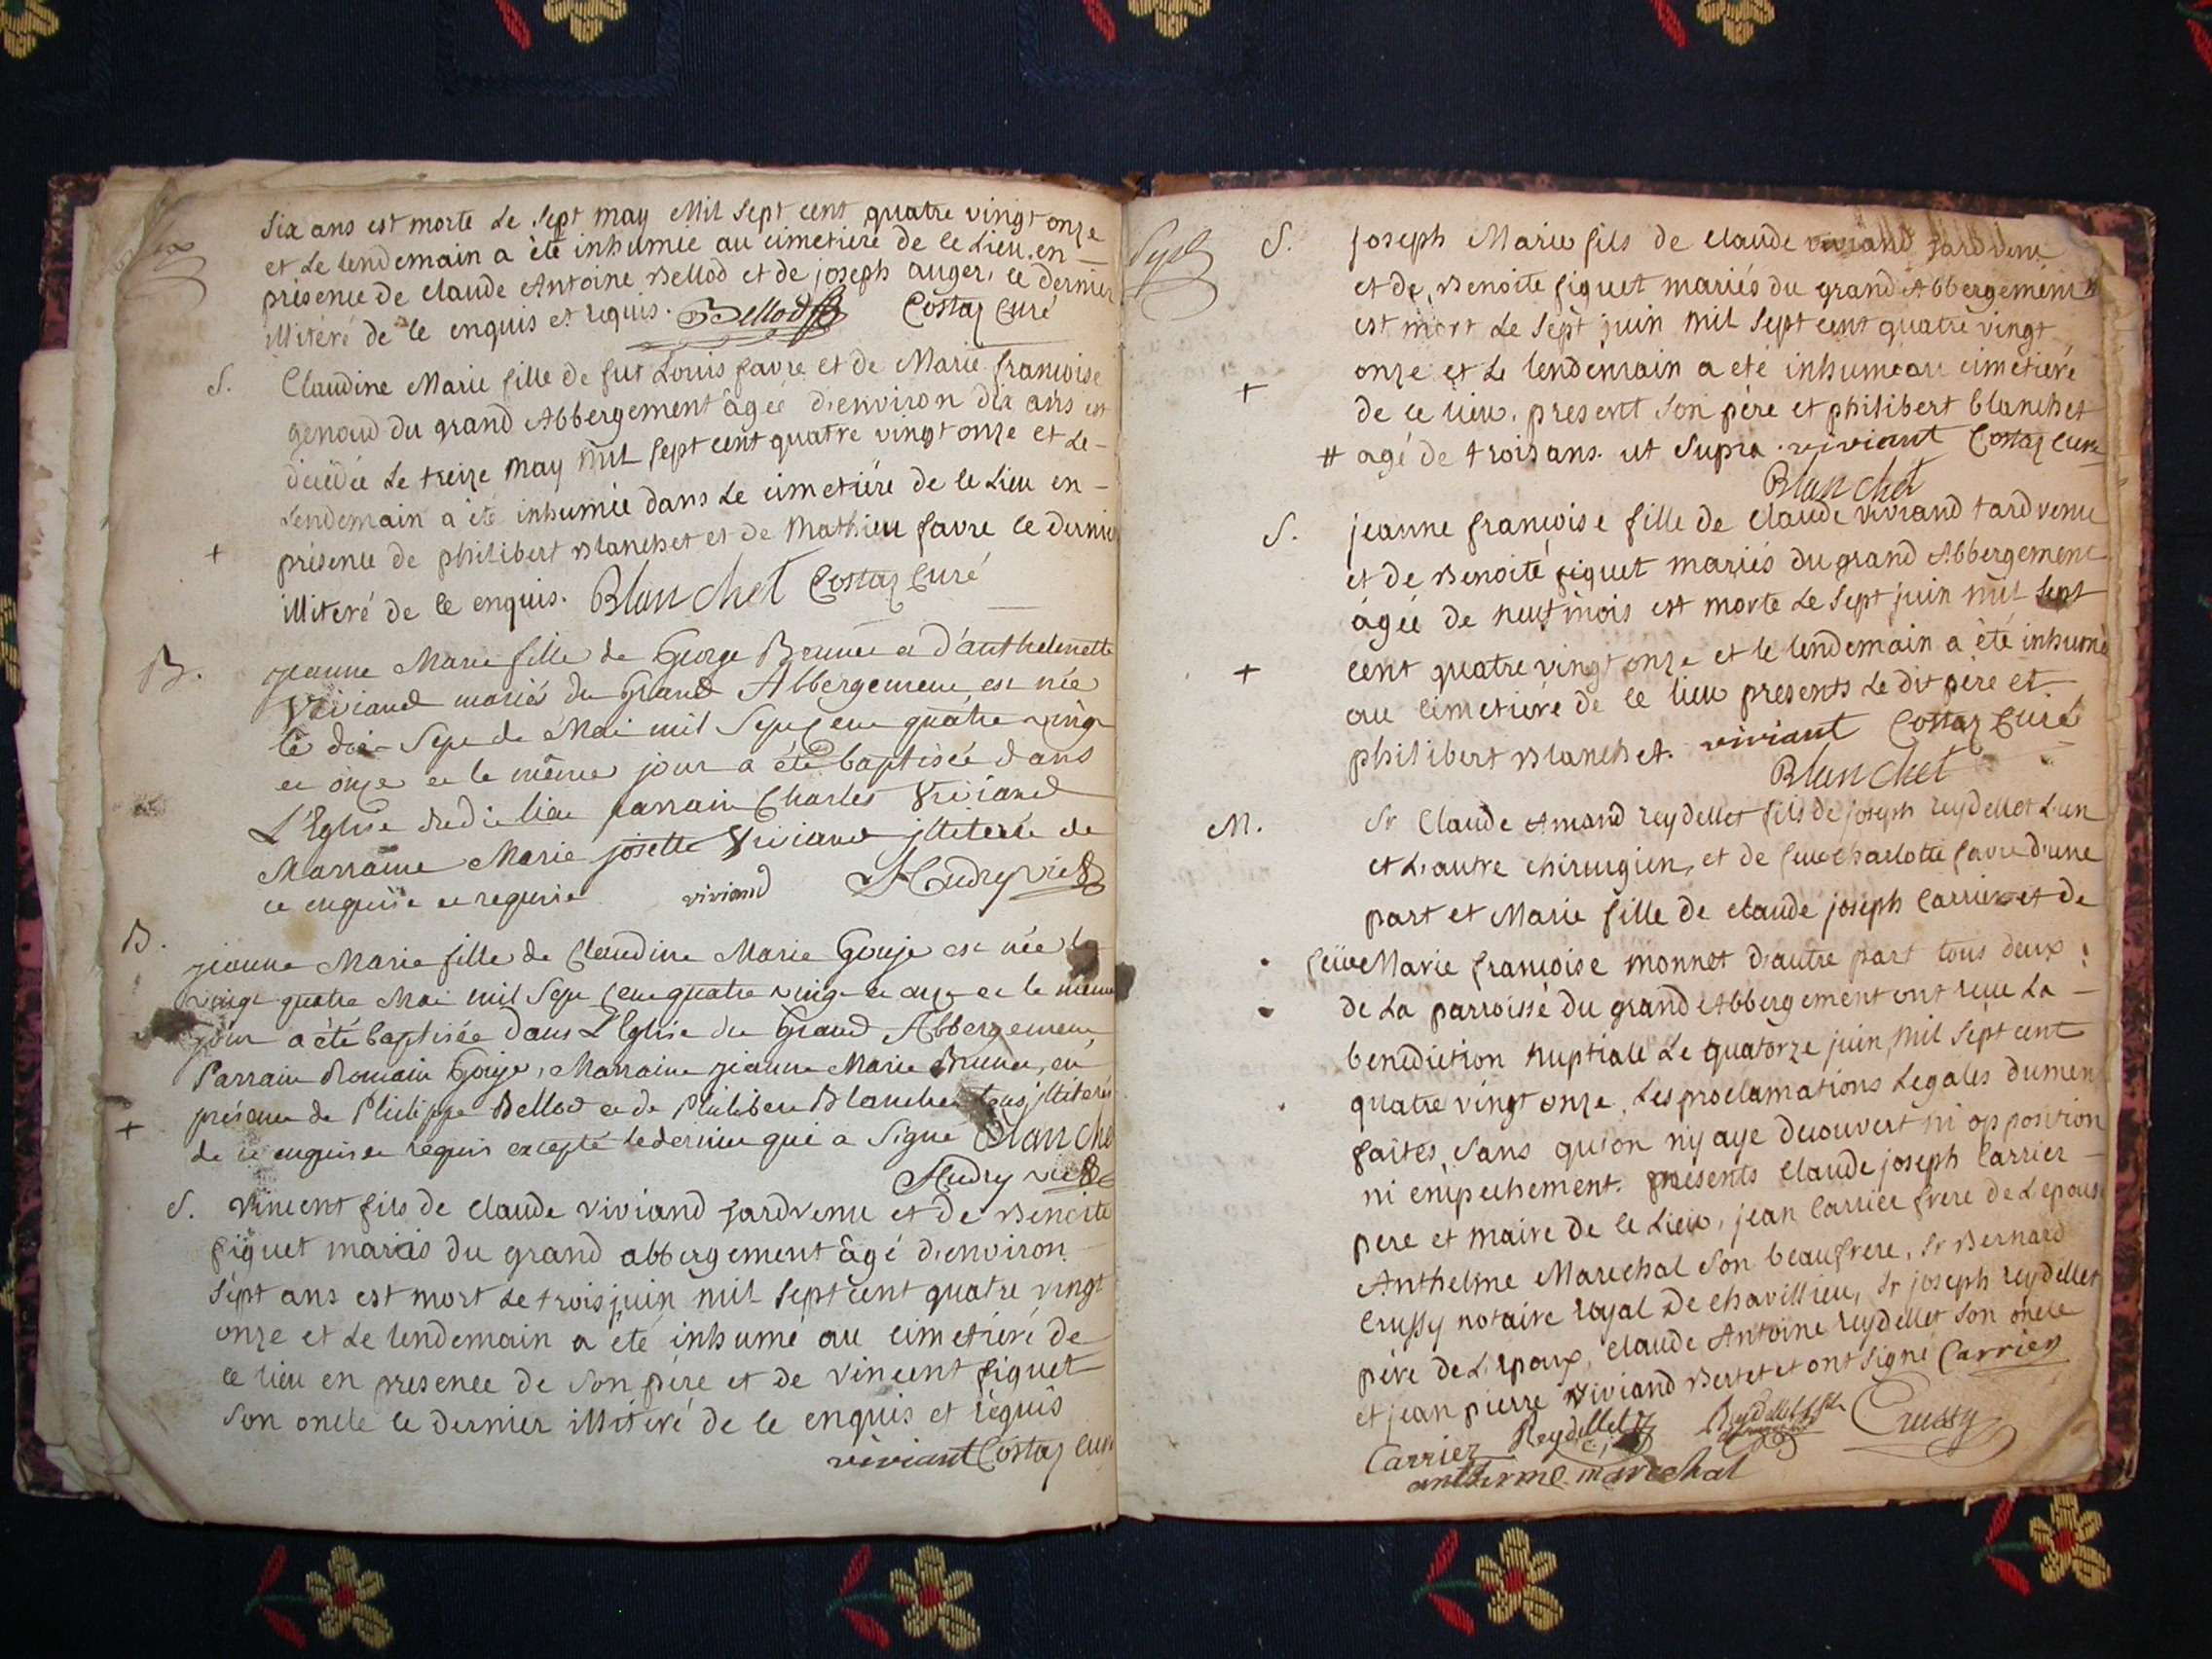 Six ans est morte Le Sept may Mil Sept cent quatre vingt onze
et Le lendemain a été inhumée au cimetiére de ce Lieu en
présence de claude Antoine Bellod et de joseph auger, ce dernier
illiteré de ce enquis et requis. Bellod Costaz Curé
S. Claudine Marie fille de fut Louis favre et de Marie françoise
genoud du grand Abbergement âgée d'environ dix ans est
décédée Le treize may mil Sept cent quatre vingt onze et Le
Lendemain a été inhumée dans Le cimetiére de ce Lieu en
+ présence de philibert Blanchet et de Mathieu favre ce dernier
illiteré de ce enquis. Blanchet Costaz Curé
B. jeanne Marie fille de George Brunet et d'anthelmette
Viviand mariés du Grand Abbergement est née
le dix-Sept de Mai mil Sept Cent quatre vingt
et onze et le même jour a été baptisée dans
L'Eglise dudit lieu parrain Charles Viviand
Marraine Marie josette Viviand jlliterée de
ce enquise et requise viviand Hudry vic
B. jeanne Marie fille de Claudine Marie Gouje est née le
vingt quatre Mai mil Sept Cent quatre vingt et onze et le même
jour a été baptisée dans L'Eglise du Grand Abbergement,
Parrain Romain Gouje, Marraine jeanne Marie Brunet, en
présence de Philippe Bellod et de Philibert Blanchet tous jlliterés
+ de ce enquis et requis excepté le dernier qui a Signé Blanchet
Hudry vic
S. Vincent fils de claude viviand tardvenu et de Benoite
figuet mariés du grand abbergement âgé d'environ
Sept ans est mort Le trois juin mil Sept cent quatre vingt
onze et Le lendemain a été inhumé au cimetiére de
ce lieu en presence de Son pére et de vincent figuet
Son oncle ce dernier illiteré de ce enquis et requis
viviant Costaz curé
S. joseph Marie fils de claude viviand tardvenu
et de Benoite figuet mariés du grand Abbergement #
est mort Le Sept juin mil Sept cent quatre vingt
onze et Le lendemain a été inhumé au cimetiére
+ de ce lieu. present Son pére et philibert blanchet
# agé de trois ans. ut Supra. viviant Costaz curé
Blanchet
S. jeanne françoise fille de claude viviand tardvenu
et de Benoite figuet mariés du grand Abbergement
âgée de neuf mois est morte Le Sept juin mil Sept
+ cent quatre vingt onze et le lendemain a été inhumé
au cimetiére de ce lieu presents Le dit pére et
philibert Blanchet. viviant Costaz Curé
Blanchet
M. Sr Claude Amand reydellet fils de joseph reydellet L'un
et L'autre chirurgien, et de feue charlotte favre d'une
part et Marie fille de claude joseph Carrier et de
feüe Marie françoise monnet d'autre part tous deux
de La parroisse du grand Abbergement ont reçu La
benediction nuptiale Le quatorze juin mil Sept cent
quatre vingt onze, Les proclamations Legales dument
faites, Sans qu'on n'y aye decouvert ni opposition
ni empechement. présents claude joseph Carrier
pere et maire de ce Lieu, jean Carrier frere de L'epouse
Anthelme Marechal Son beaufrere, Sr Bernard
Crussy notaire royal de chavillieu, Sr joseph reydellet
pére de L'epoux, claude Antoine reydellet Son oncle
et jean pierre viviand Bertet et ont signé Carrier
Carrier Reydellet Reydellet Crussy
anthelme marechal